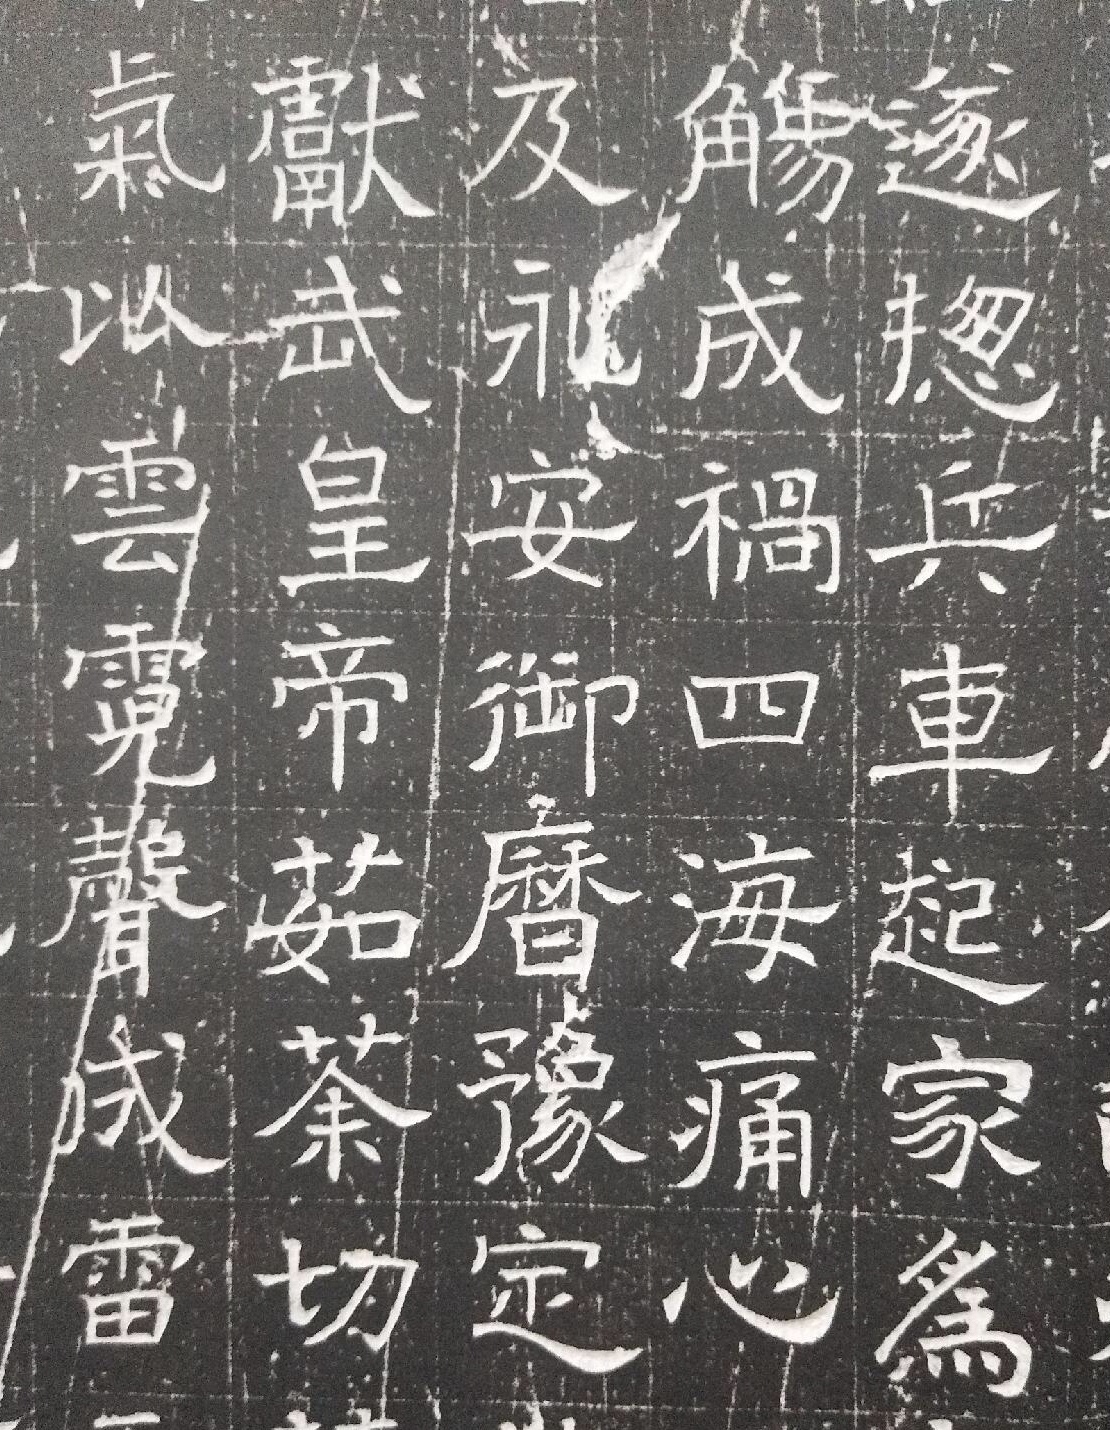 逐揔兵車起家為
觴成禍四海痛心
及永安御曆豫定
獻武皇帝茹荼切
氣以雲霓聲成雷